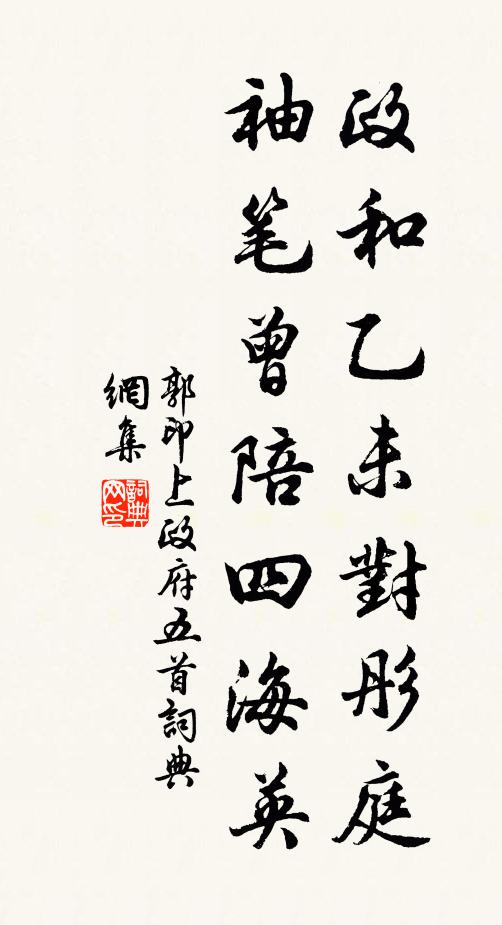 政和乙未對彤庭
袖笔曾陪四海英
郭印上政府五首詞典
網集
詞典
网印